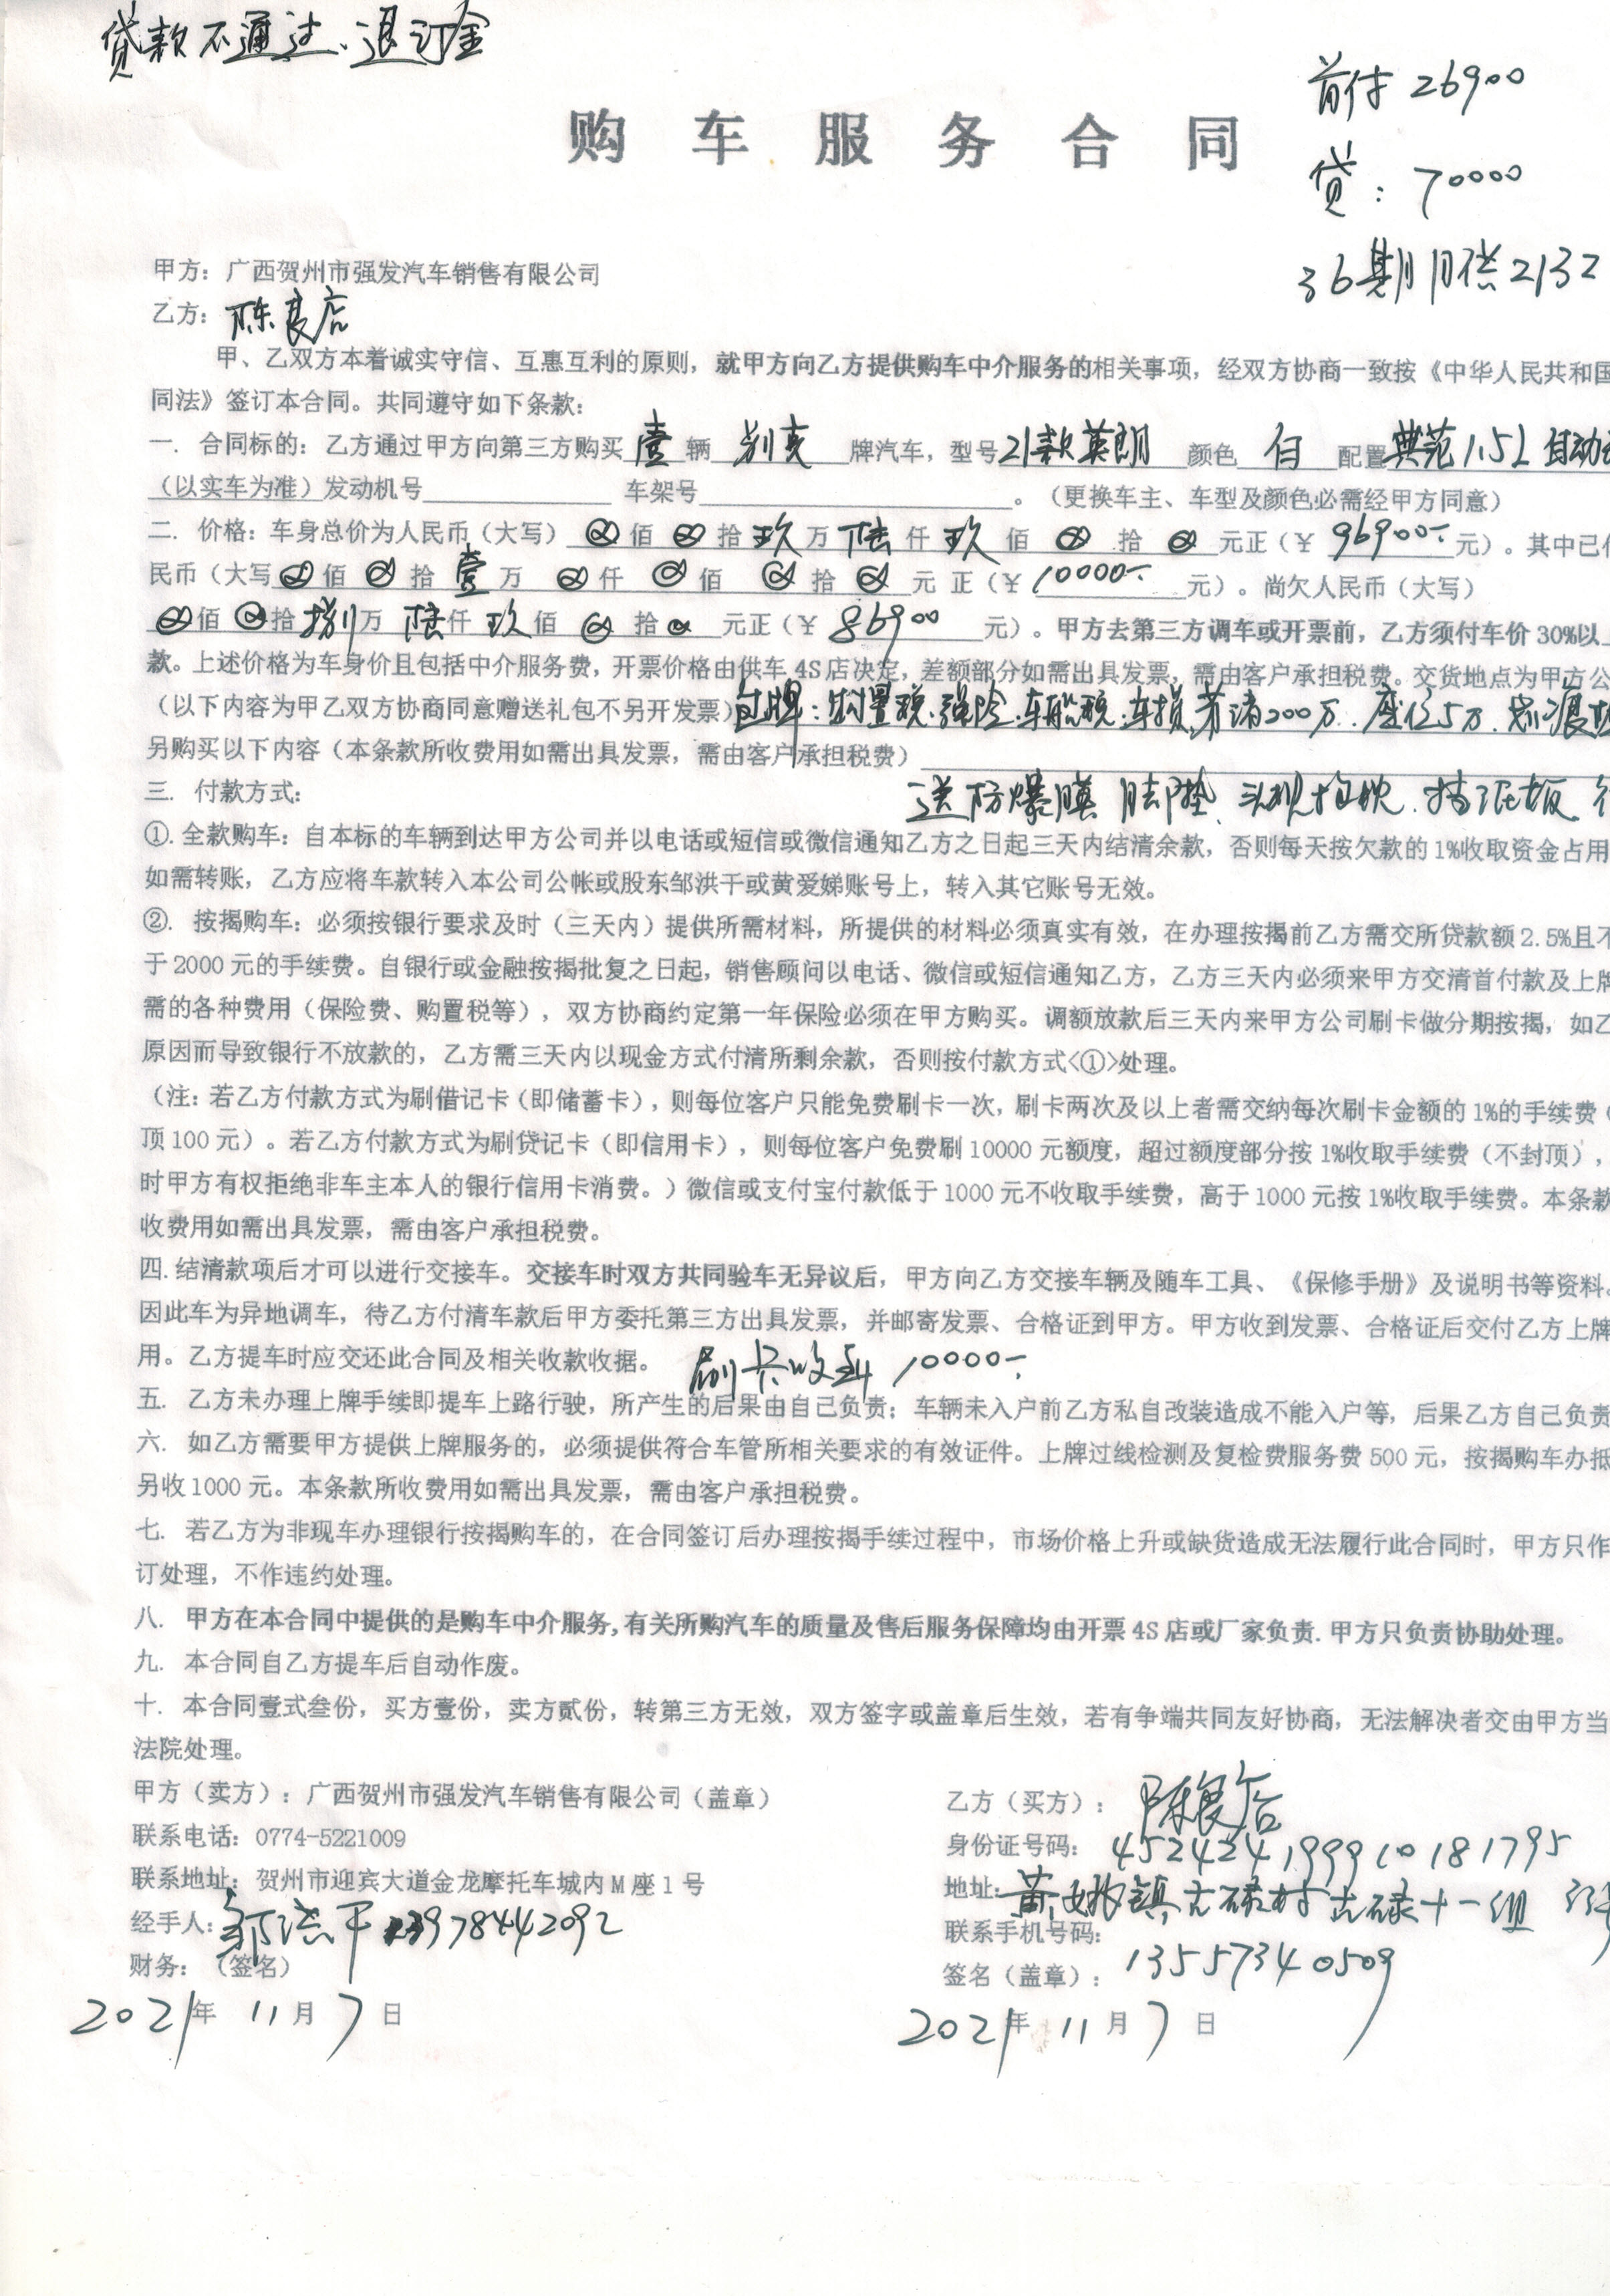 贷款不通过、退订金
首付 26900
购车服务合同
贷: 70000
36期月供2132
甲方：广西贺州市强发汽车销售有限公司
乙方：陈良店
甲、乙双方本着诚实守信、互惠互利的原则，就甲方向乙方提供购车中介服务的相关事项，经双方协商一致按《中华人民共和国
同法》签订本合同。共同遵守如下条款：
一. 合同标的：乙方通过甲方向第三方购买 壹 辆 别克 牌汽车，型号 21款英朗 颜色 白 配置 典范1.5L 自动
（以实车为准）发动机号 车架号 。（更换车主、车型及颜色必需经甲方同意）
二. 价格：车身总价为人民币（大写） ⊗ 佰 ⊗ 拾 玖 万 陆 仟 玖 佰 ⊗ 拾 ⊗ 元正（￥ 96900- 元）。其中已
民币（大写 ⊗ 佰 ⊗ 拾 壹 万 ⊗ 仟 ⊗ 佰 ⊗ 拾 ⊗ 元 正（￥ 10000- 元）。尚欠人民币（大写）
⊗ 佰 ⊗ 拾 捌 万 陆 仟 玖 佰 ⊗ 拾 ⊗ 元正（￥ 86900 元）。甲方去第三方调车或开票前，乙方须付车价 30%以
款。上述价格为车身价且包括中介服务费，开票价格由供车 4S 店决定，差额部分如需出具发票，需由客户承担税费。交货地点为甲方公
（以下内容为甲乙双方协商同意赠送礼包不另开发票）包牌：购置税、强险、车船税、车损、第三者200万、座位5万、
另购买以下内容（本条款所收费用如需出具发票，需由客户承担税费）
三. 付款方式： 送防爆膜 脚垫、头枕抱枕、挡泥板
①. 全款购车：自本标的车辆到达甲方公司并以电话或短信或微信通知乙方之日起三天内结清余款，否则每天按欠款的 1%收取资金占用
如需转账，乙方应将车款转入本公司公帐或股东邹洪干或黄爱娣账号上，转入其它账号无效。
②. 按揭购车：必须按银行要求及时（三天内）提供所需材料，所提供的材料必须真实有效，在办理按揭前乙方需交所贷款额 2.5%且不
于 2000 元的手续费。自银行或金融按揭批复之日起，销售顾问以电话、微信或短信通知乙方，乙方三天内必须来甲方交清首付款及上牌
需的各种费用（保险费、购置税等），双方协商约定第一年保险必须在甲方购买。调额放款后三天内来甲方公司刷卡做分期按揭，如乙
原因而导致银行不放款的，乙方需三天内以现金方式付清所剩余款，否则按付款方式<①>处理。
（注：若乙方付款方式为刷借记卡（即储蓄卡），则每位客户只能免费刷卡一次，刷卡两次及以上者需交纳每次刷卡金额的 1%的手续费（
顶 100 元）。若乙方付款方式为刷贷记卡（即信用卡），则每位客户免费刷 10000 元额度，超过额度部分按 1%收取手续费（不封顶），
时甲方有权拒绝非车主本人的银行信用卡消费。）微信或支付宝付款低于 1000 元不收取手续费，高于 1000 元按 1%收取手续费。本条款
收费用如需出具发票，需由客户承担税费。
四. 结清款项后才可以进行交接车。交接车时双方共同验车无异议后，甲方向乙方交接车辆及随车工具、《保修手册》及说明书等资料。
因此车为异地调车，待乙方付清车款后甲方委托第三方出具发票，并邮寄发票、合格证到甲方。甲方收到发票、合格证后交付乙方上牌
用。乙方提车时应交还此合同及相关收款收据。 刷卡收到 10000-
五. 乙方未办理上牌手续即提车上路行驶，所产生的后果由自己负责；车辆未入户前乙方私自改装造成不能入户等，后果乙方自己负责
六. 如乙方需要甲方提供上牌服务的，必须提供符合车管所相关要求的有效证件。上牌过线检测及复检费服务费 500 元，按揭购车办抵
另收 1000 元。本条款所收费用如需出具发票，需由客户承担税费。
七. 若乙方为非现车办理银行按揭购车的，在合同签订后办理按揭手续过程中，市场价格上升或缺货造成无法履行此合同时，甲方只作
订处理，不作违约处理。
八. 甲方在本合同中提供的是购车中介服务，有关所购汽车的质量及售后服务保障均由开票 4S 店或厂家负责. 甲方只负责协助处理。
九. 本合同自乙方提车后自动作废。
十. 本合同壹式叁份，买方壹份，卖方贰份，转第三方无效，双方签字或盖章后生效，若有争端共同友好协商，无法解决者交由甲方当
法院处理。
甲方（卖方）：广西贺州市强发汽车销售有限公司（盖章） 乙方（买方）：陈良店
联系电话：0774-5221009 身份证号码：452424199910181795
联系地址：贺州市迎宾大道金龙摩托车城内 M 座 1 号 地址：黄姚镇古碌村古碌十一组
经手人：邹洪干 13978442092 联系手机号码：
财务：（签名） 签名（盖章）：13557340509
2021年 11月 7日 2021年 11月 7日